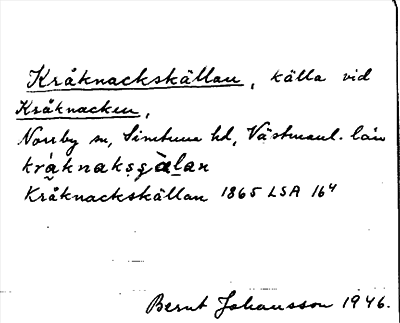 Kråknackskällan, källa vid
Kråknacken,
Norrby sn, Simtuna hd, Västmanl. län
kråknaksçälan
Kråknackskällan 1865 LSA 164
Bernt Johansson 1946.